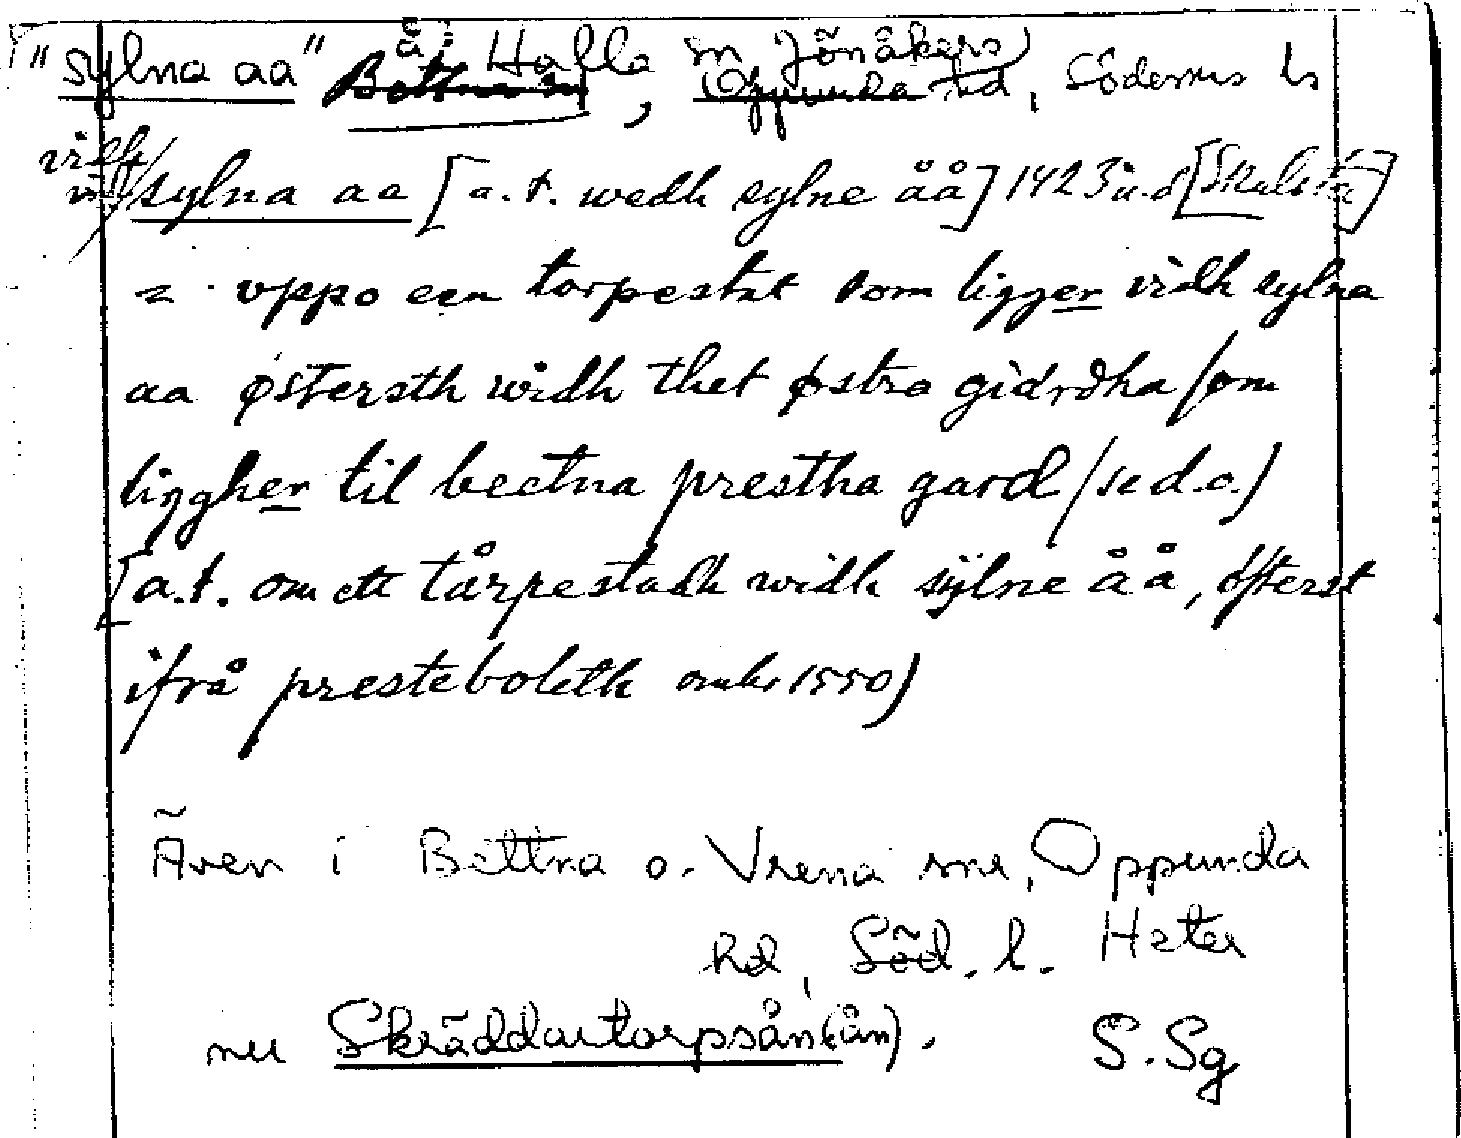 "sylna aa" å i Halla sn Jönåkers hd, Södermls ls
vidh sylna aa [a.t. wedh sylne åå] 1423 u.d [Skalsta]
= · vppo een torpestat som ligger vidh sylna
aa østersth widh thet østra giärdha som
liggher til beetna prestha gard (se d.o.)
[a.t. om ett tårpestadh widh sÿlne åå, österst
ifrå presteboleth omkr 1550)
Även i Bettna o. Vrena snr, Oppunda
hd, Söd. l. Heter
nu Skräddartorpsån (ån). S. Sg